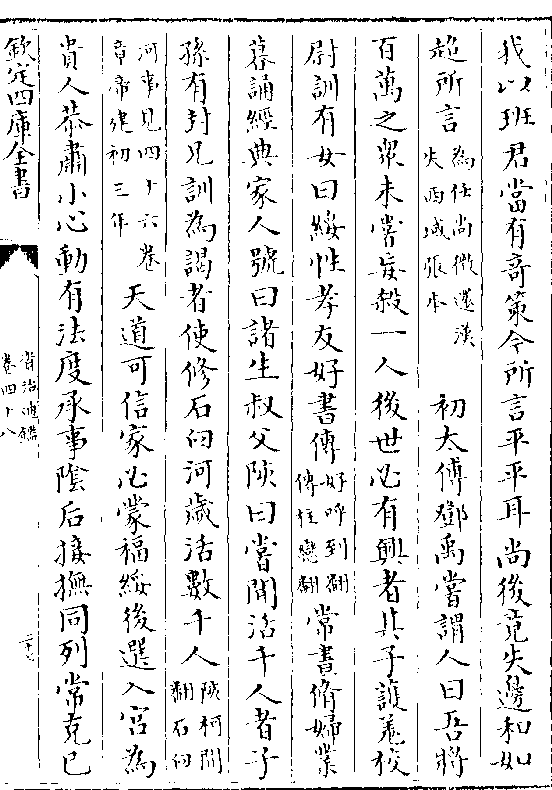 我以班君當有奇策今所言平平耳尚後竟失邊和如
超所言為任尚徴還漢失西域張本 初太傅鄧禹嘗謂人曰吾將
百萬之衆未嘗妄殺一人後世必有興者其子護羌校
尉訓有女曰綏性孝友好書傳好呼到翻傳柱戀翻常晝脩婦業
暮誦經典家人號曰諸生叔父陔曰嘗聞活千人者子
孫有封兄訓為謁者使修石臼河歲活數千人陔柯開翻石臼
河事見四十六卷章帝建初三年天道可信家必蒙福綏後選入宮為
貴人恭肅小心動有法度承事陰后接撫同列常克已
欽定四庫全書
資治通鑑
卷四十八